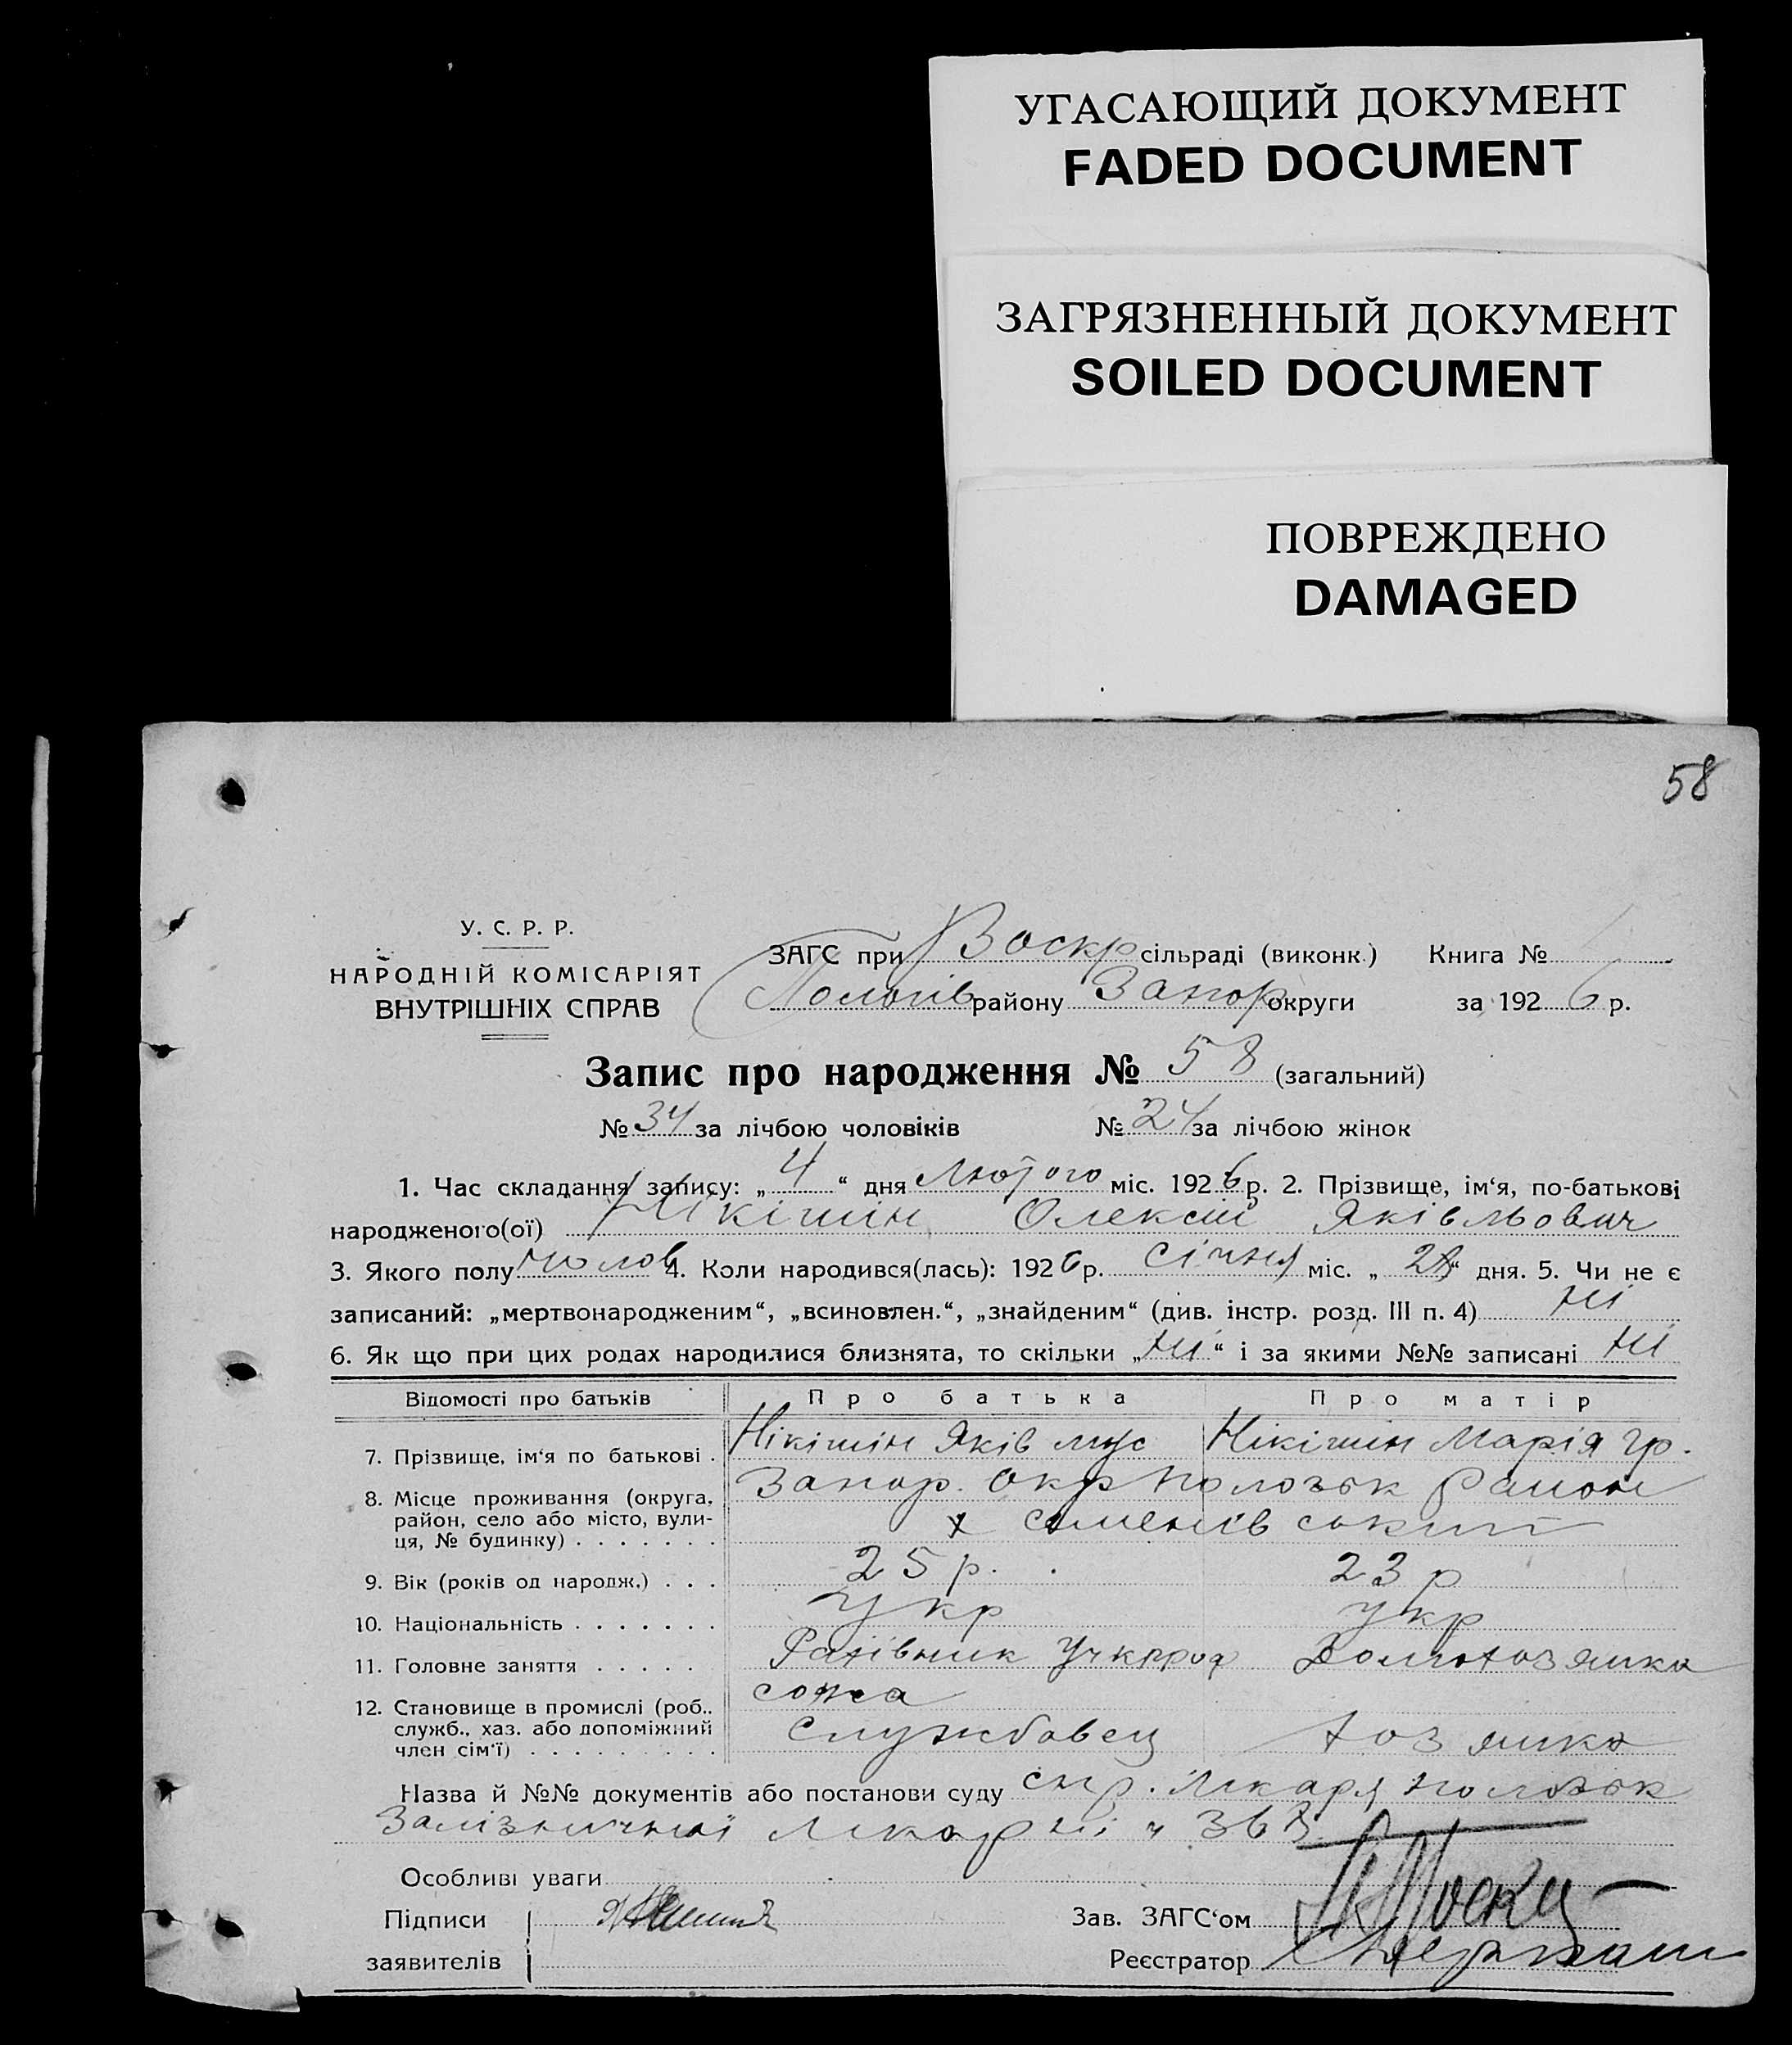 УГАСАЮЩИЙ ДОКУМЕНТ
FADED DOCUMENT
ЗАГРЯЗНЕННЫЙ ДОКУМЕНТ
SOILED DOCUMENT
ПОВРЕЖДЕНО
DAMAGED
58
У. С. Р. Р.
НАРОДНІЙ КОМІСАРІЯТ
ВНУТРІШНІХ СПРАВ
ЗАГС при Воскр сільраді (виконк.) Книга №
Пологів району Запор округи за 1926 р.
Запис про народження № 58 (загальний)
№ 34 за лічбою чоловіків № 24 за лічбою жінок
1. Час складання запису: „4“ дня Лютого міс. 1926 р. 2. Прізвище, ім‘я, по-батькові
народженого(ої) Нікішин Олексій Яківльович
3. Якого полу чолов 4. Коли народився(лась): 1926 р. січня міс. „ “ дня. 5. Чи не є
записаний: „мертвонародженим“, „всиновлен.“, „знайденим“ (див. інстр. розд. III п. 4) Ні
6. Як що при цих родах народилися близнята, то скільки „Ні“ і за якими №№ записані Ні
Відомості про батьків Про батька Про матір
7. Прізвище, ім‘я по батькові . Нікішін Яків Нікішин Марія Гр.
8. Місце проживання (округа, район, село або місто, вулиця, № будинку) . . . . . . . Запор. Окр Пологк Район
х Семенівський
9. Вік (років од народж.) . . . 25 р. 23 р
10. Національність . . . . . . . Укр Укр
11. Головне заняття . . . . . Рахівник Учкпроф Домохозяйка
12. Становище в промислі (роб., служб., хаз. або допоміжний член сім‘ї) . . . . . . . . . союза
службовец хозяйка
Назва й №№ документів або постанови суду спр. Лікаря
Залізничної лікарні
Особливі уваги
Підписи Зав. ЗАГС‘ом
заявителів Реєстратор